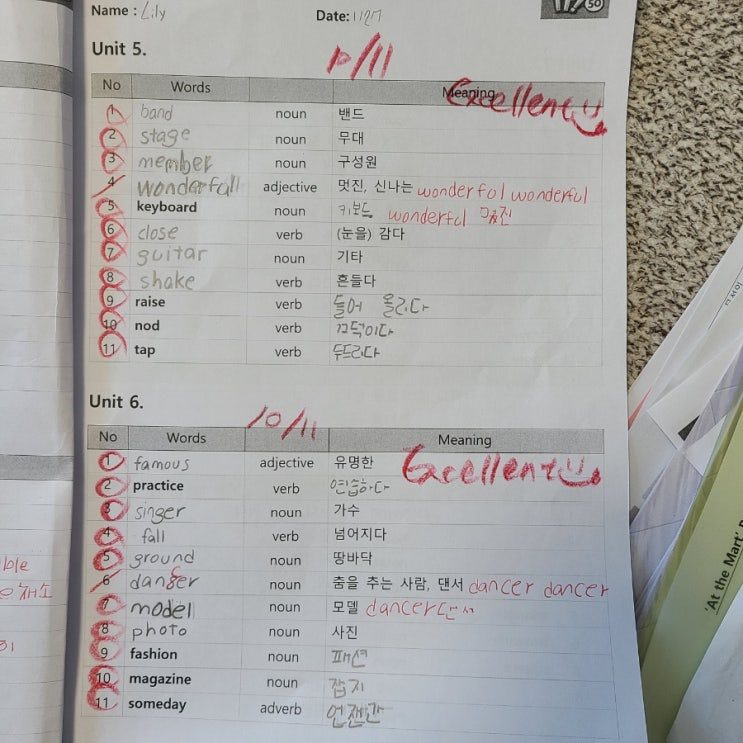 Name : Lily Date: 1127
50
Unit 5.
10/11
No Words Meaning
Excellent
1 band noun 밴드
2 stage noun 무대
3 member noun 구성원
4 wonderfall adjective 멋진, 신나는 wonderful wonderful
5 keyboard noun 키보드 wonderful 멋진
6 close verb (눈을) 감다
7 guitar noun 기타
8 shake verb 흔들다
9 raise verb 들어 올리다
10 nod verb 끄덕이다
11 tap verb 두드리다
Unit 6.
10/11
No Words Meaning
1 famous adjective 유명한 Excellent
2 practice verb 연습하다
3 singer noun 가수
4 fall verb 넘어지다
5 ground noun 땅바닥
6 danser noun 춤을 추는 사람, 댄서 dancer dancer
7 model noun 모델 dancer 댄서
8 photo noun 사진
9 fashion noun 패션
10 magazine noun 잡지
11 someday adverb 언젠간
'At the Mart'